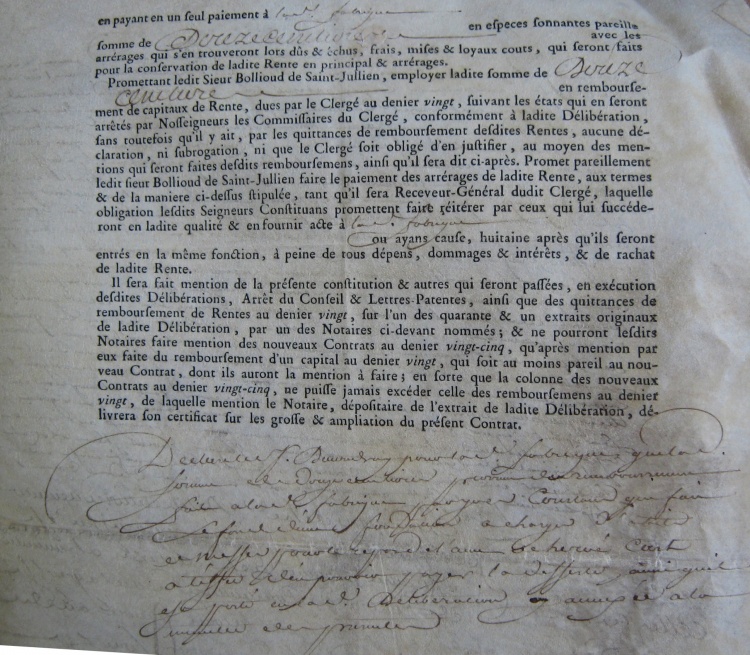 en payant en un seul paiement à lad. fabrique
en especes sonnantes pareille
somme de Douze cent livres avec les
arrérages qui s'en trouveront lors dûs & échus, frais, mises & loyaux couts, qui seront faits
pour la conservation de ladite Rente en principal & arrérages.
Promettant ledit Sieur Bollioud de Saint-Jullien, employer ladite somme de Douze
cent livres en rembourse-
ment de capitaux de Rente, dues par le Clergé au denier vingt, suivant les états qui en seront
arrêtés par Nosseigneurs les Commissaires du Clergé, conformément à ladite Délibération,
sans toutefois qu'il y ait, par les quittances de remboursement desdites Rentes, aucune dé-
claration, ni subrogation, ni que le Clergé soit obligé d'en justifier, au moyen des men-
tions qui seront faites desdits remboursemens, ainsi qu'il sera dit ci-après. Promet pareillement
ledit sieur Bollioud de Saint-Jullien faire le paiement des arrérages de ladite Rente, aux termes
& de la maniere ci-dessus stipulée, tant qu'il sera Receveur-Général dudit Clergé, laquelle
obligation lesdits Seigneurs Constituans promettent faire réitérer par ceux qui lui succéde-
ront en ladite qualité & en fournir acte à lad. fabrique
ou ayans cause, huitaine après qu'ils seront
entrés en la même fonction, à peine de tous dépens, dommages & intérêts, & de rachat
de ladite Rente.
Il sera fait mention de la présente constitution & autres qui seront passées, en exécution
desdites Délibérations, Arrêt du Conseil & Lettres-Patentes, ainsi que des quittances de
remboursement de Rentes au denier vingt, sur l'un des quarante & un extraits originaux
de ladite Délibération, par un des Notaires ci-devant nommés; & ne pourront lesdits
Notaires faire mention des nouveaux Contrats au denier vingt-cinq, qu'après mention par
eux faite du remboursement d'un capital au denier vingt, qui soit au moins pareil au nou-
veau Contrat, dont ils auront la mention à faire; en sorte que la colonne des nouveaux
Contrats au denier vingt-cinq, ne puisse jamais excéder celle des remboursemens au denier
vingt, de laquelle mention le Notaire, dépositaire de l'extrait de ladite Délibération, dé-
livrera son certificat sur les grosse & ampliation du présent Contrat.
Declare led. S. pour lad. fabrique, que lad.
somme de Douze cent livres provient du remboursement
fait a lad. fabrique par
le fond d'une fondation a charge
de messes pour le repos de l'ame
a l'effet d'en pouvoir payer la ainsi quil
est porté en lad. Deliberation annexée a la
minute des presentes